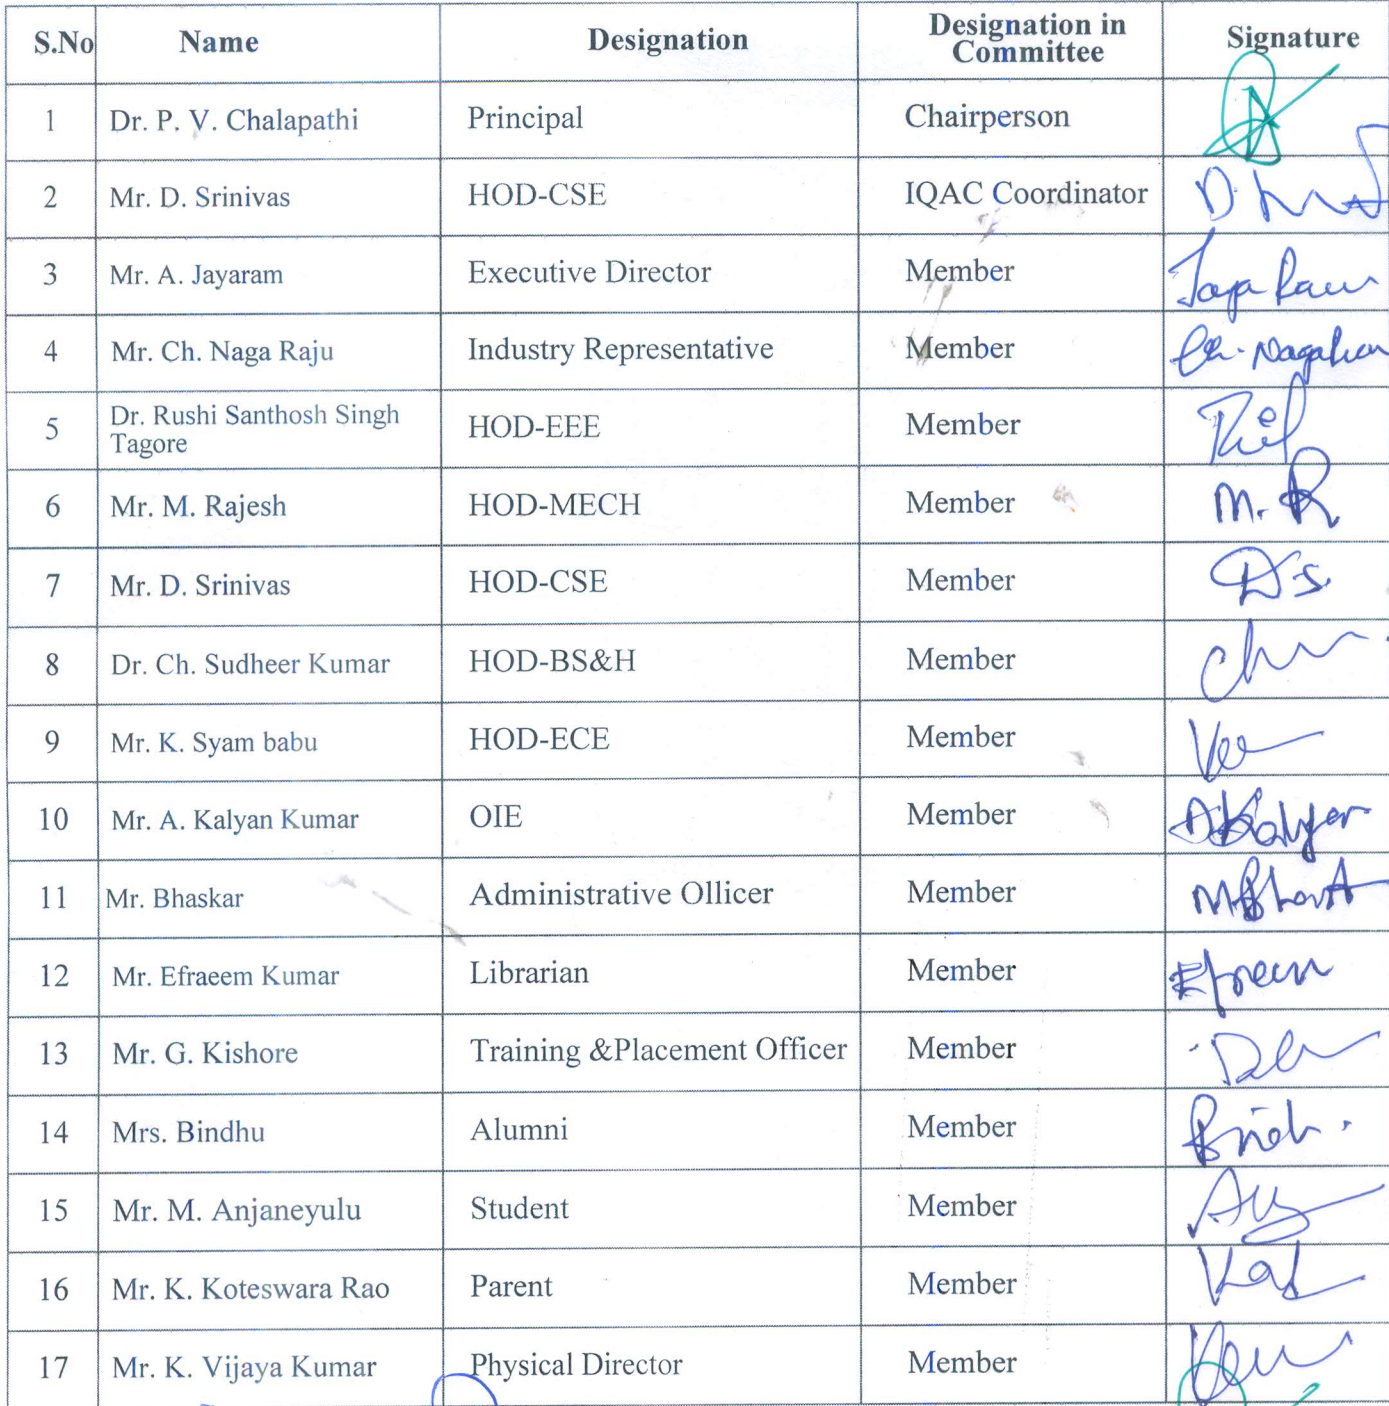 S.No Name Designation Designation in Committee Signature
1 Dr. P. V. Chalapathi Principal Chairperson
2 Mr. D. Srinivas HOD-CSE IQAC Coordinator
3 Mr. A. Jayaram Executive Director Member Jaya Ram
4 Mr. Ch. Naga Raju Industry Representative Member
5 Dr. Rushi Santhosh Singh Tagore HOD-EEE Member
6 Mr. M. Rajesh HOD-MECH Member M. R
7 Mr. D. Srinivas HOD-CSE Member D.S.
8 Dr. Ch. Sudheer Kumar HOD-BS&H Member
9 Mr. K. Syam babu HOD-ECE Member
10 Mr. A. Kalyan Kumar OIE Member
11 Mr. Bhaskar Administrative Ollicer Member
12 Mr. Efraeem Kumar Librarian Member
13 Mr. G. Kishore Training &Placement Officer Member
14 Mrs. Bindhu Alumni Member
15 Mr. M. Anjaneyulu Student Member
16 Mr. K. Koteswara Rao Parent Member
17 Mr. K. Vijaya Kumar Physical Director Member